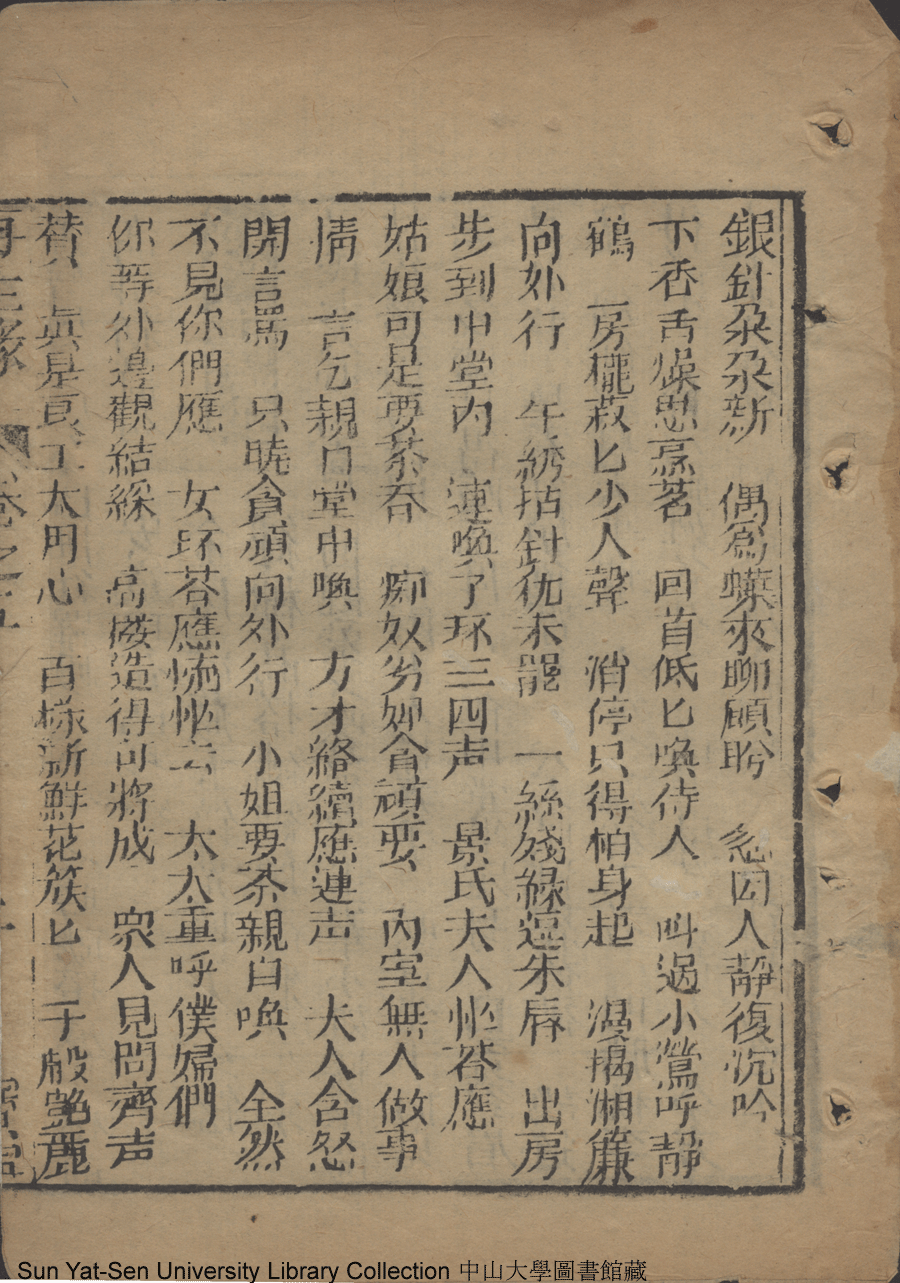 銀針朶朶新　偶爲蝶來聊顧盼　忽因人靜復沉吟
下香舌燥思烹茗　回首低匕喚侍人　叫過小鶯呼靜
鶴　一房櫳寂匕少人聲　消停只得柏身起　漫揭湘簾
向外行　午綉拈針犹未罷　一絲殘緑逗朱唇　出房
步到中堂内　連喚了环三四声　景氏夫人忙答應
姑娘可是要茶吞　痴奴劣婢貪頑耍　内室無人做事
情　言乞親口堂中喚　方才絡續應連声　夫人含怒
開言罵　只曉貪頑向外行　小姐要茶親自喚　全然
不見你們應　女环荅應怖忙去　太太重呼僕婦們
你等外邊觀結綵　高楼造得可將成　衆人見問齊声
賛　真是良工大用心　百様新鮮花簇匕　千般艶麗
再生縁　卷之五
Sun Yat-Sen University Library Collection 中山大學圖書館藏